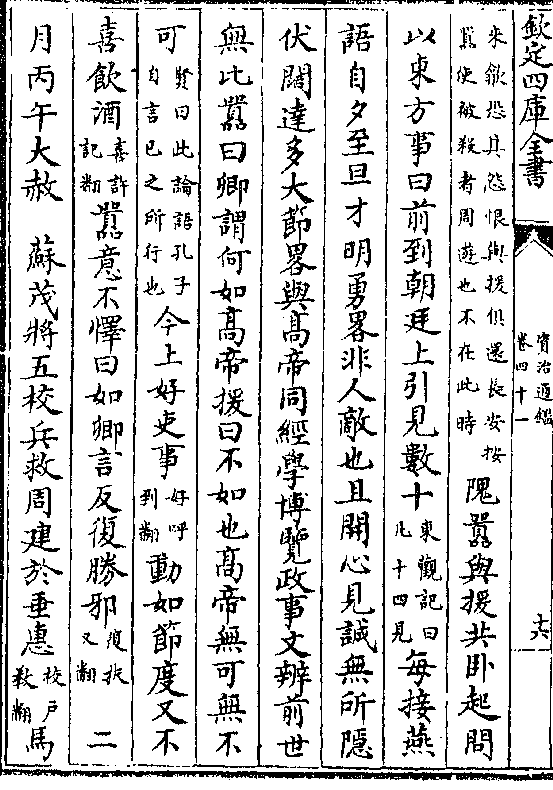 欽定四庫全書
資治通鑑
卷四十一
十六
來歙恐其怨恨與援俱還長安按
囂使被殺者周遊也不在此時
隗囂與援共卧起問
以東方事曰前到朝廷上引見數十東觀記曰凡十四見每接燕
語自夕至旦才明勇畧非人敵也且開心見誠無所隱
伏闊達多大節畧與髙帝同經學博覽政事文辨前世
無比囂曰卿謂何如髙帝援曰不如也髙帝無可無不
可賢曰此論語孔子自言已之所行也今上好吏事好呼到翻動如節度又不
喜飲酒喜許記翻囂意不懌曰如卿言反復勝邪復扶又翻二
月丙午大赦　蘇茂將五校兵救周建於垂惠校户教翻馬